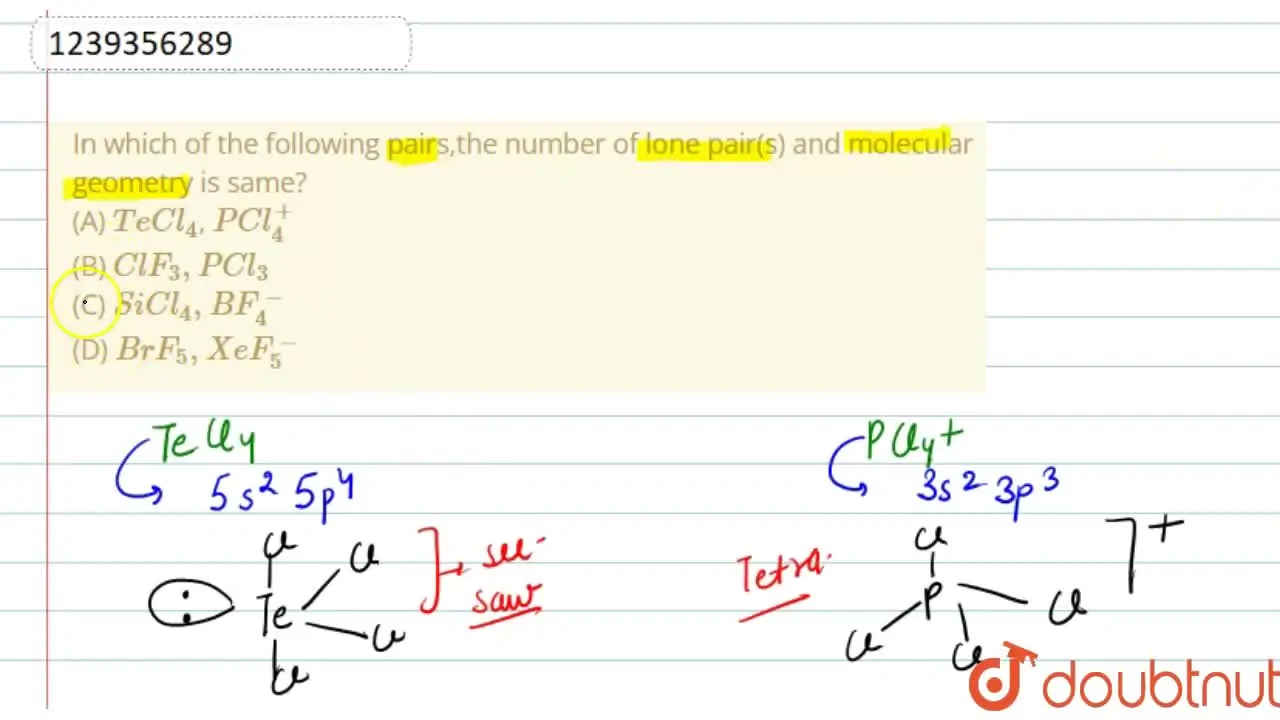 1239356289
In which of the following pairs,the number of lone pair(s) and molecular
geometry is same?
(A) TeCl₄, PCl₄⁺
(B) ClF₃, PCl₃
(C) SiCl₄, BF₄⁻
(D) BrF₅, XeF₅⁻
TeCl4 PCl4+
5s² 5p⁴ 3s² 3p³
Cl Cl Cl +
Te see- Tetra. P
saw
Cl Cl Cl
Cl Cl
doubtnut